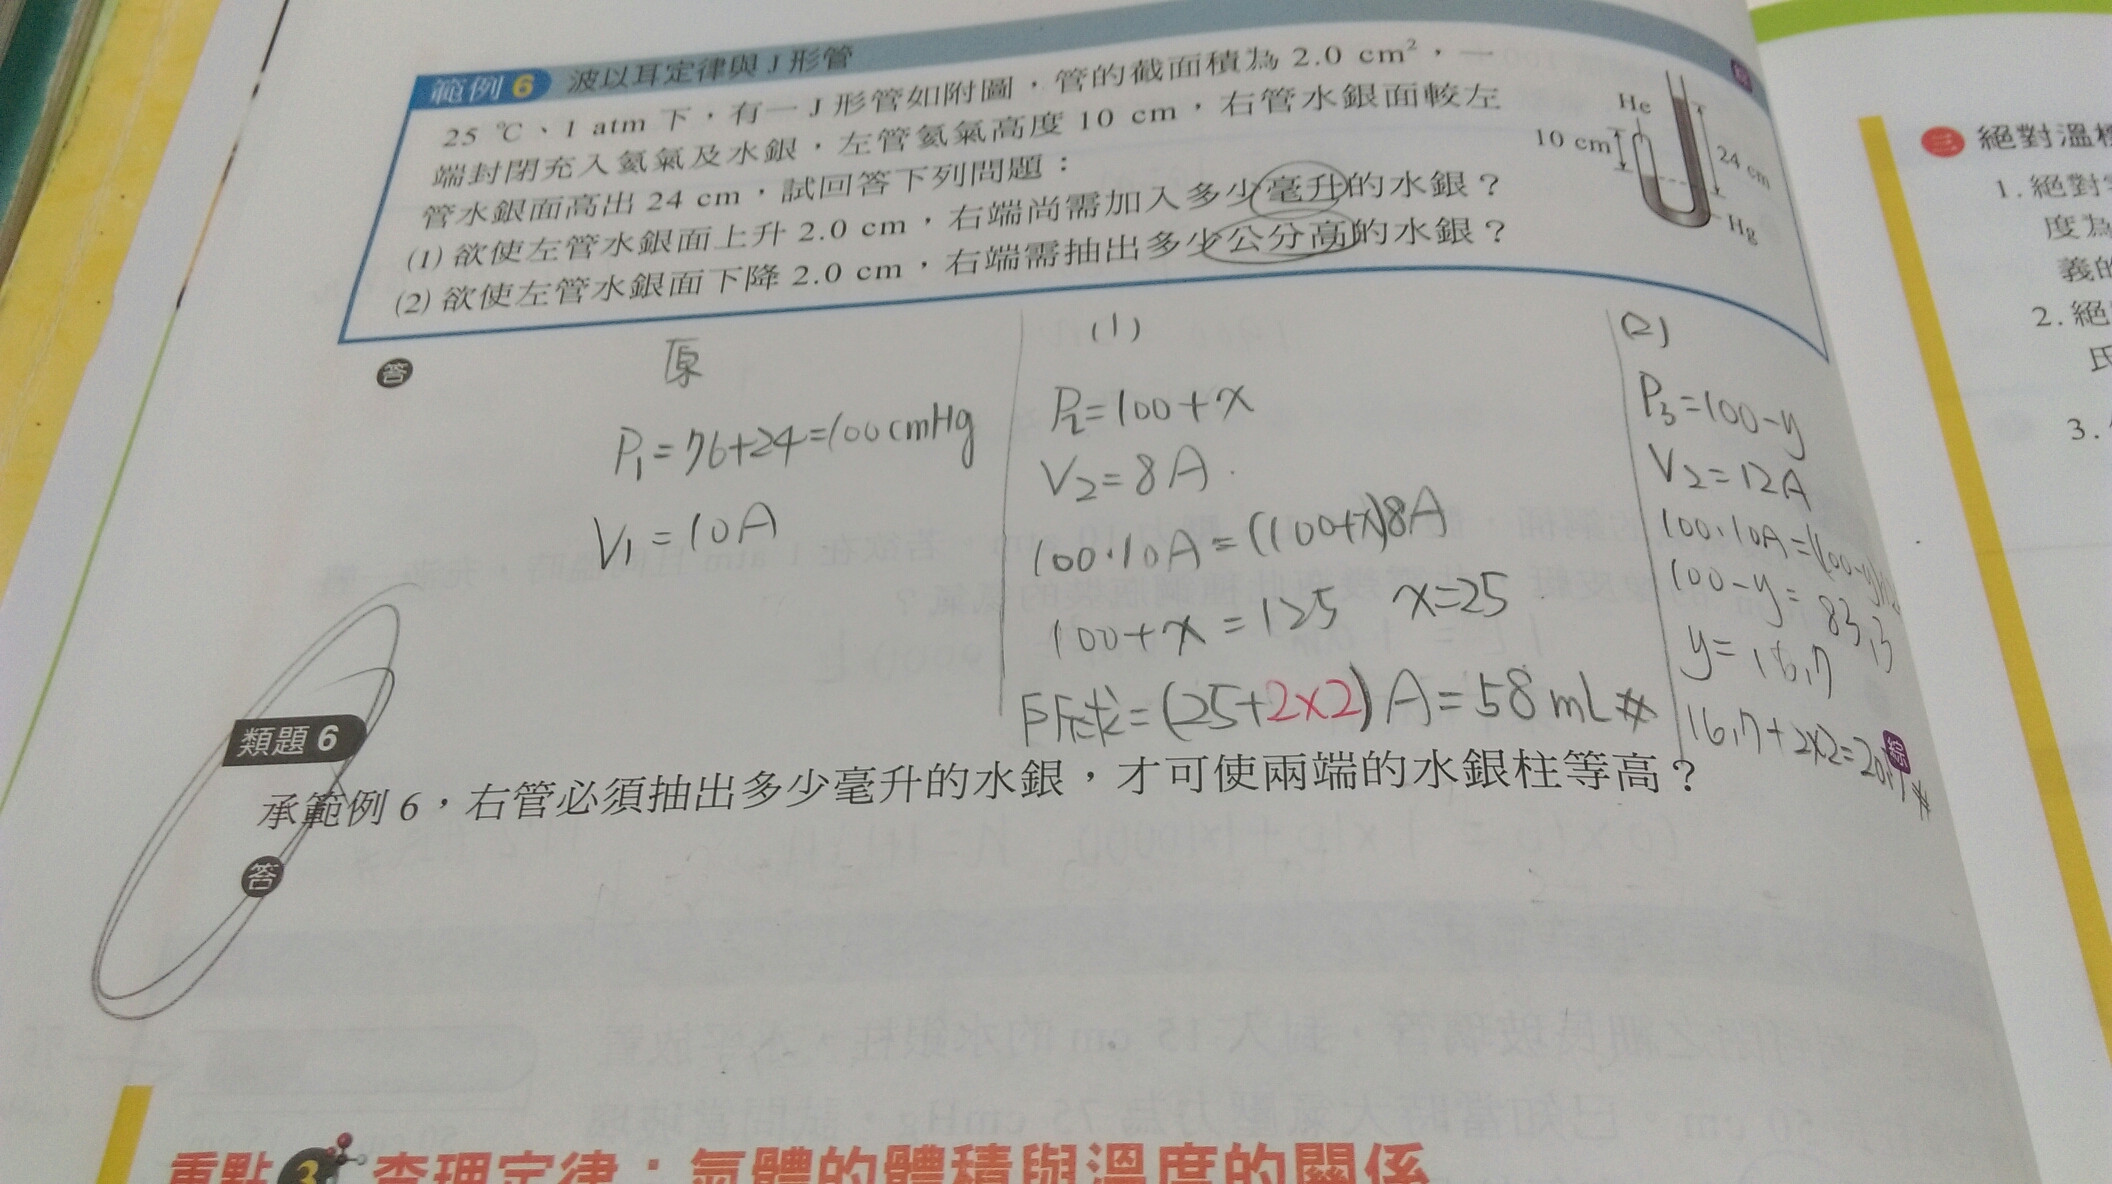 範例 6 波以耳定律與 J 形管
25 ℃、1 atm 下，有一 J 形管如附圖，管的截面積為 2.0 cm²，一
端封閉充入氦氣及水銀，左管氦氣高度 10 cm，右管水銀面較左
管水銀面高出 24 cm，試回答下列問題：
(1) 欲使左管水銀面上升 2.0 cm，右端尚需加入多少毫升的水銀？
(2) 欲使左管水銀面下降 2.0 cm，右端需抽出多少公分高的水銀？
He
10 cm
24 cm
Hg
答
原
P₁=76+24=100cmHg
V₁=10A
(1)
P₂=100+x
V₂=8A
100·10A=(100+x)8A
100+x=125 x=25
所求=(25+2×2)A=58mL#
(2)
P₃=100-y
V₂=12A
100·10A=(100-y)
100-y=83.3
y=16.7
16.7+2×2=20.7#
類題 6
綜
承範例 6，右管必須抽出多少毫升的水銀，才可使兩端的水銀柱等高？
答
重點 3 查理定律：氣體的體積與溫度的關係
三 絕對溫
1. 絕對
度為
義的
2. 絕
氏
3.